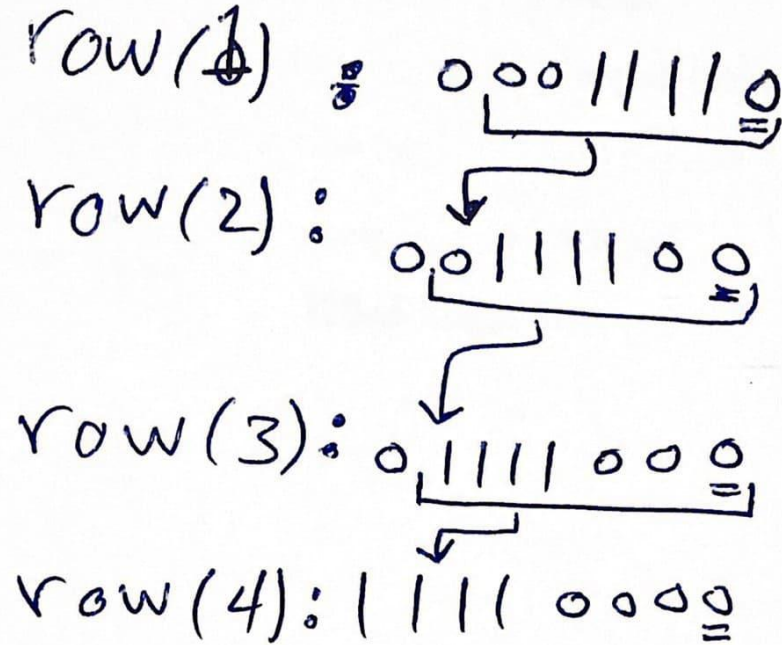 row(1) : 00011110
row(2): 00111100
row(3): 01111000
row(4): 11110000